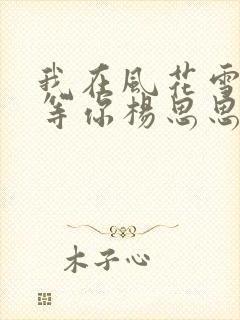 我在風花雪
等你楊思思
木子心